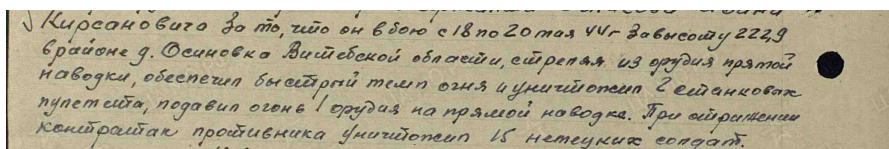 Кирсановича за то, что он в бою с 18 по 20 мая 44 г за высоту 222,9
в районе д. Осиновка Витебской области, стреляя из орудия прямой
наводки, обеспечил быстрый темп огня и уничтожил 2 станковых
пулемета, подавил огонь 1 орудия на прямой наводке. При отражении
контратак противника уничтожил 15 немецких солдат.